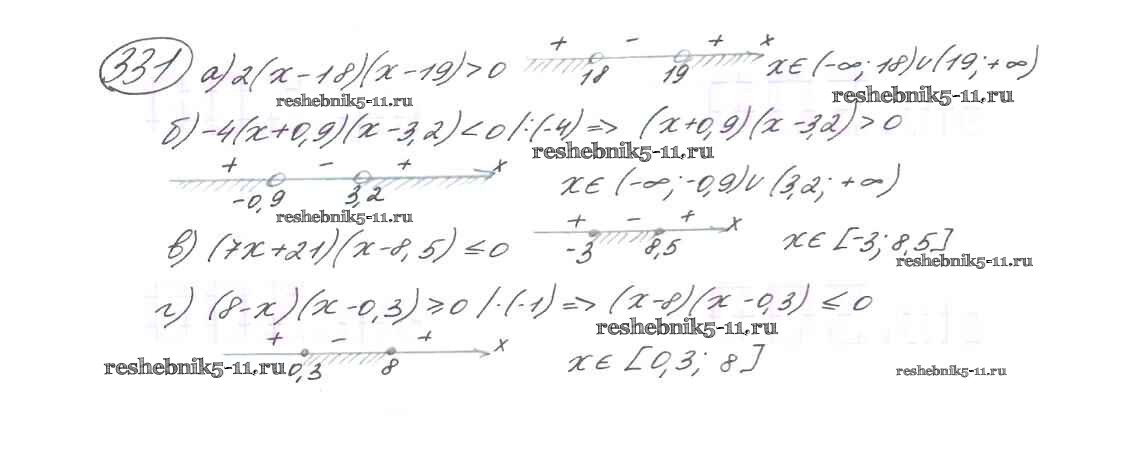 331 а) 2(x-18)(x-19)>0 + - + x 18 19 x∈(-∞; 18)∪(19; +∞)
reshebnik5-11.ru reshebnik5-11.ru
б) -4(x+0,9)(x-3,2)<0 /:(-4) => (x+0,9)(x-3,2)>0
reshebnik5-11.ru
+ - + x -0,9 3,2 x∈(-∞; -0,9)∪(3,2; +∞)
reshebnik5-11.ru
в) (7x+21)(x-8,5)≤0 + - + x -3 8,5 x∈[-3; 8,5]
reshebnik5-11.ru
г) (8-x)(x-0,3)≥0 /·(-1) => (x-8)(x-0,3)≤0
reshebnik5-11.ru
+ - + x 0,3 8 x∈[0,3; 8]
reshebnik5-11.ru reshebnik5-11.ru